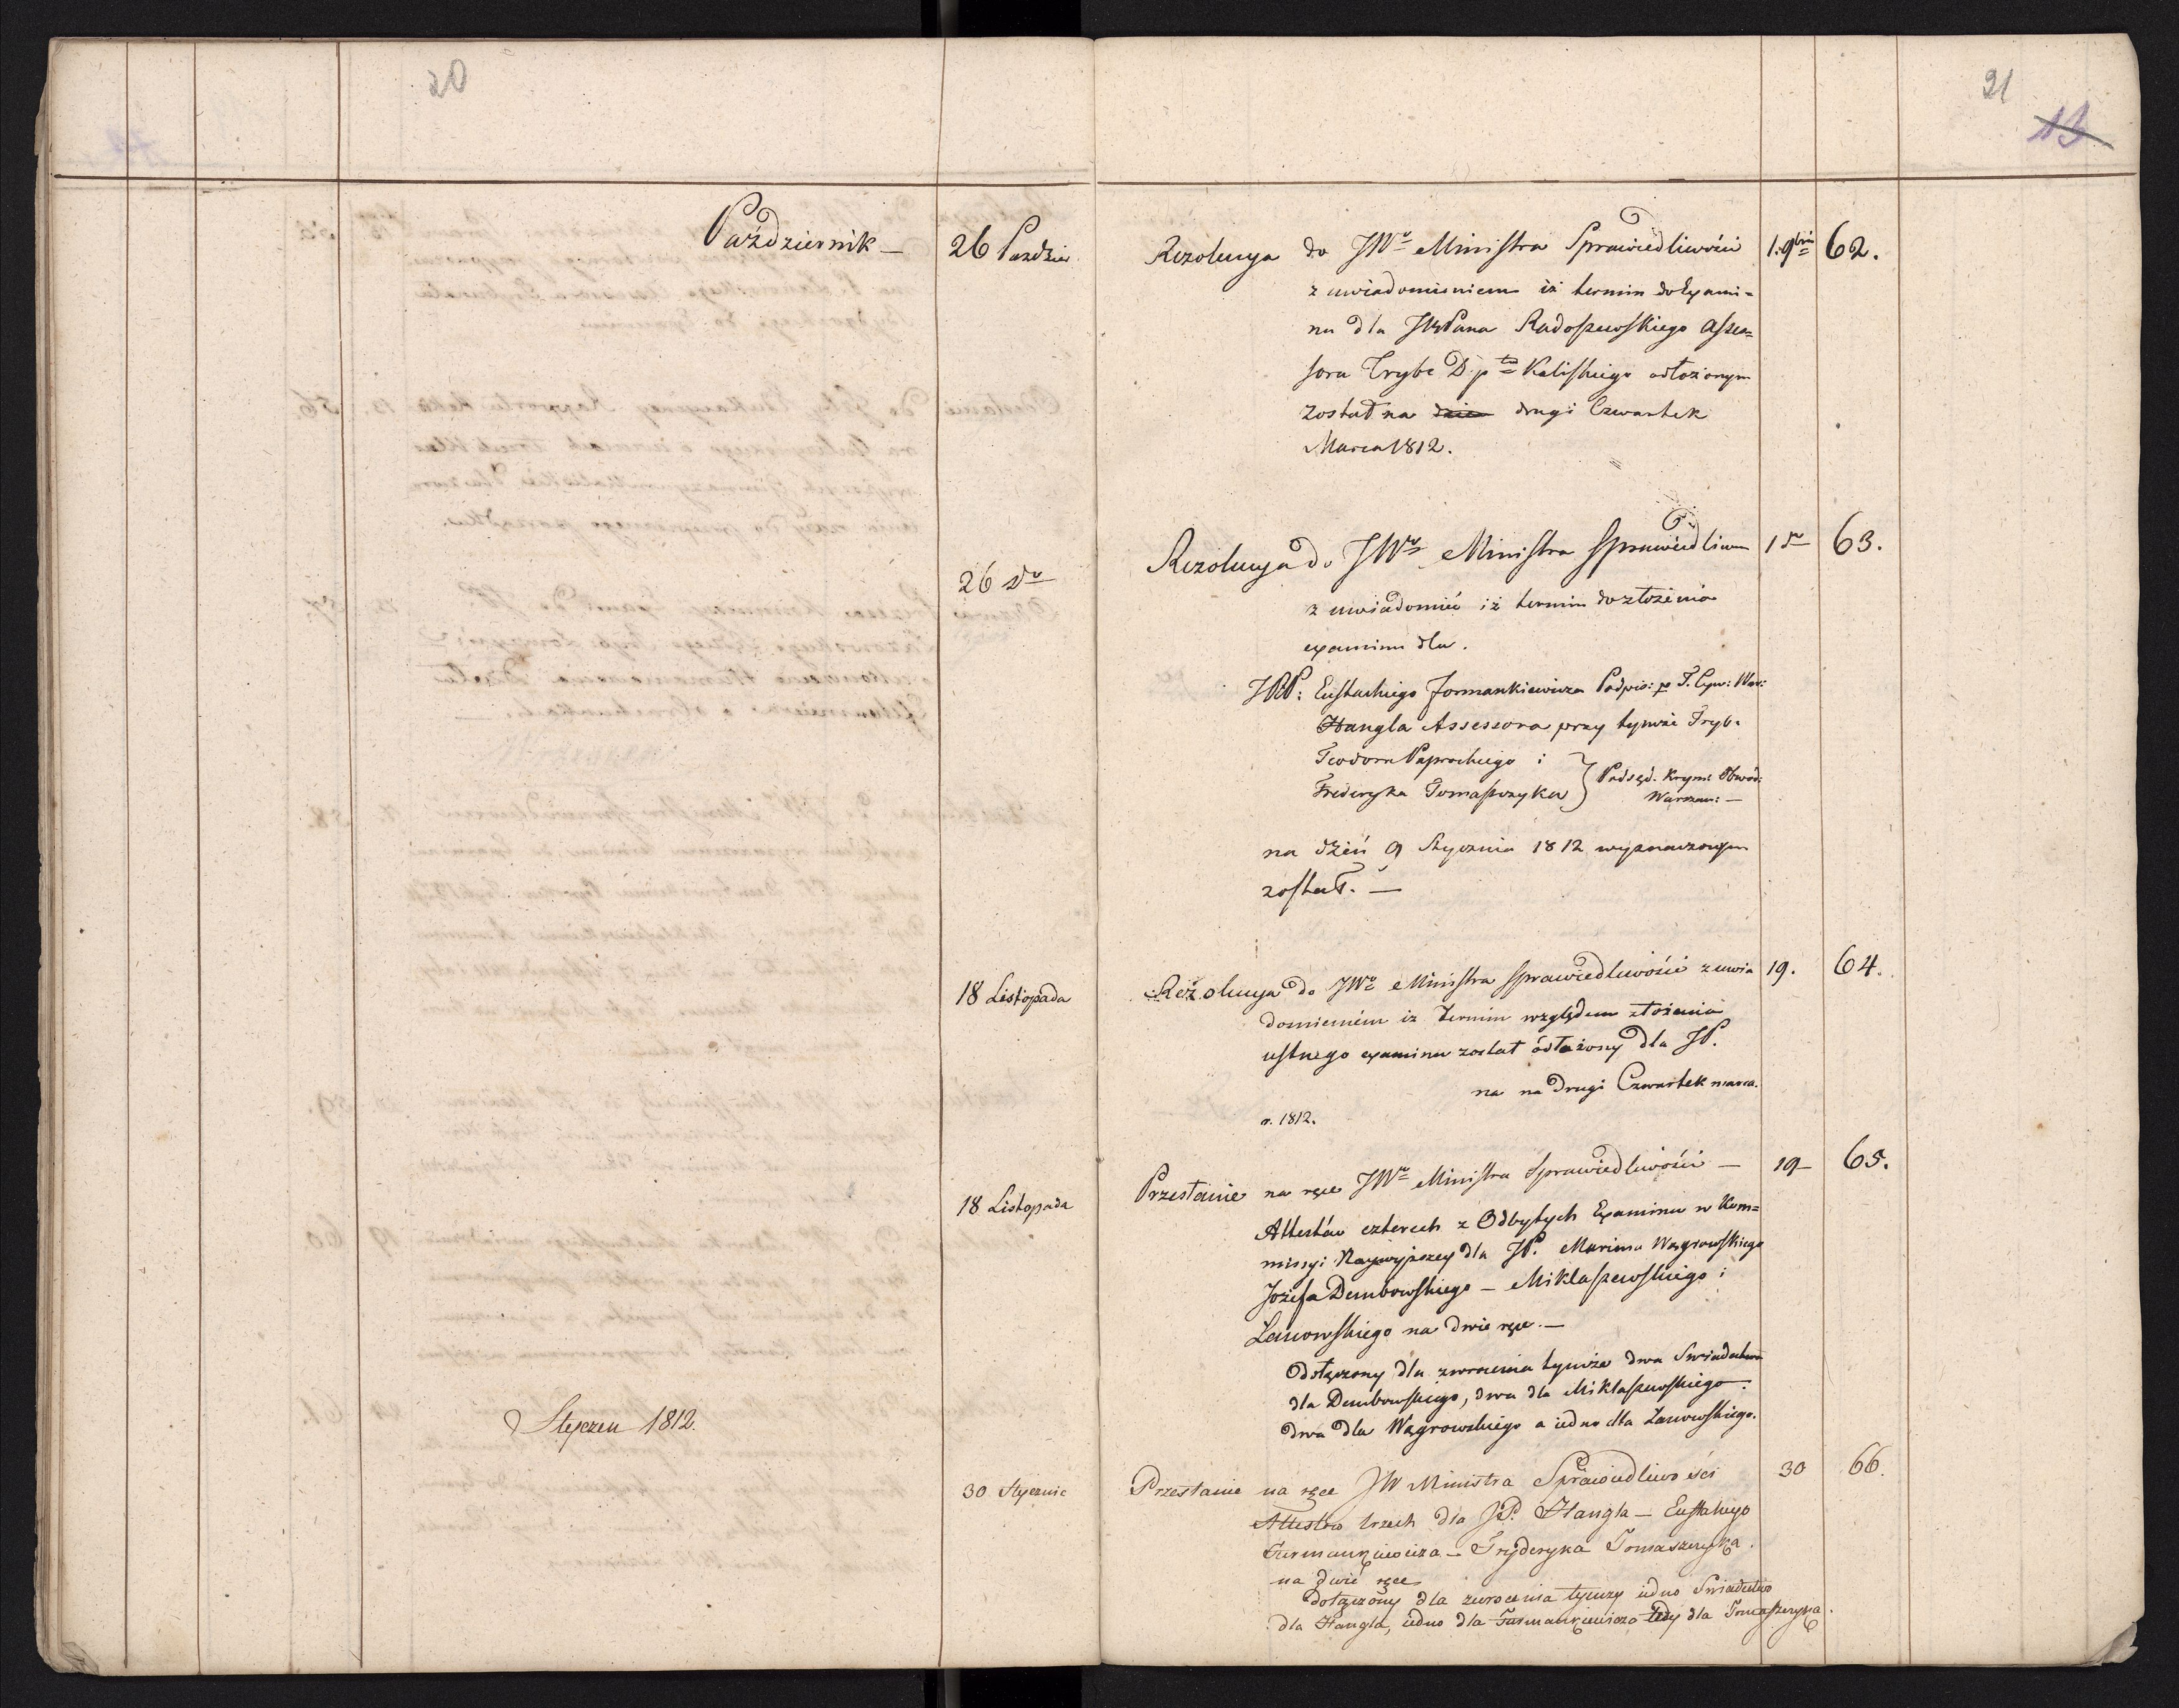 20
21
13
Październik —
26 Paździer
Rezolucya do JWo Ministra Sprawiedliwości 1. 9bris 62.
z uwiadomieniem iż termin do Exami=
nu dla JWPana Radoszewskiego Assес=
sora Trybu Dpto Kaliskiego odłożonym
został na dzien drugi Czwartek
Marca 1812.
26 do
Rezolucya do JWo Ministra Sprawiedliwo 1 do 63.
z uwiadomić iż termin do złożenia
examinu dla.
JPP: Eustachiego Formankiewicza Podpis: p. T. Cyw: War:
Hangla Assessora przy tymże Tryb.
Teodora Paprockiego i
Frederyka Tomaszczyka } Podsęd. Krym: Obwod:
Warszaw: —
na dzień 9 Stycznia 1812 wyznaczonym
został. —
18 Listopada
Rezolucya do JWo Ministra Sprawiedliwości z uwia 19. 64.
domieniem iz termin względem złożenia
ustnego examinu został odłożony dla JP.
na na drugi Czwartek marca.
r. 1812.
18 Listopada
Przesłanie na ręce JWo Ministra Sprawiedliwości — 19 — 65.
Attestów czterech z Odbytych Examinu w Kom=
missyi Naywyższey dla JP. Marima Wągrowskiego
Jozefa Dembowskiego — Miklaszewskiego i
Lanowskiego na dwie ręce. —
Odołączony dla zwrócenia tymże dwa Swiadectwa
dla Dembowskiego, dwa dla Miklaszewskiego.
dwa dla Wągrowskiego a iedno dla Lanowskiego.
Styczen 1812.
30 Stycznia
Przesłanie na ręce JW Ministra Sprawiedliwości 30 66.
Attestów trzech dla JP. Hangla — Eustachego
Furmankiewicza — Fryderyka Tomaszczyka.
na dwie ręce
dołączony dla zwrocenia tymzy iedno Swiadectwo
dla Hangla, iedno dla Furmankiewicza tedy dla Tomaszczyka.